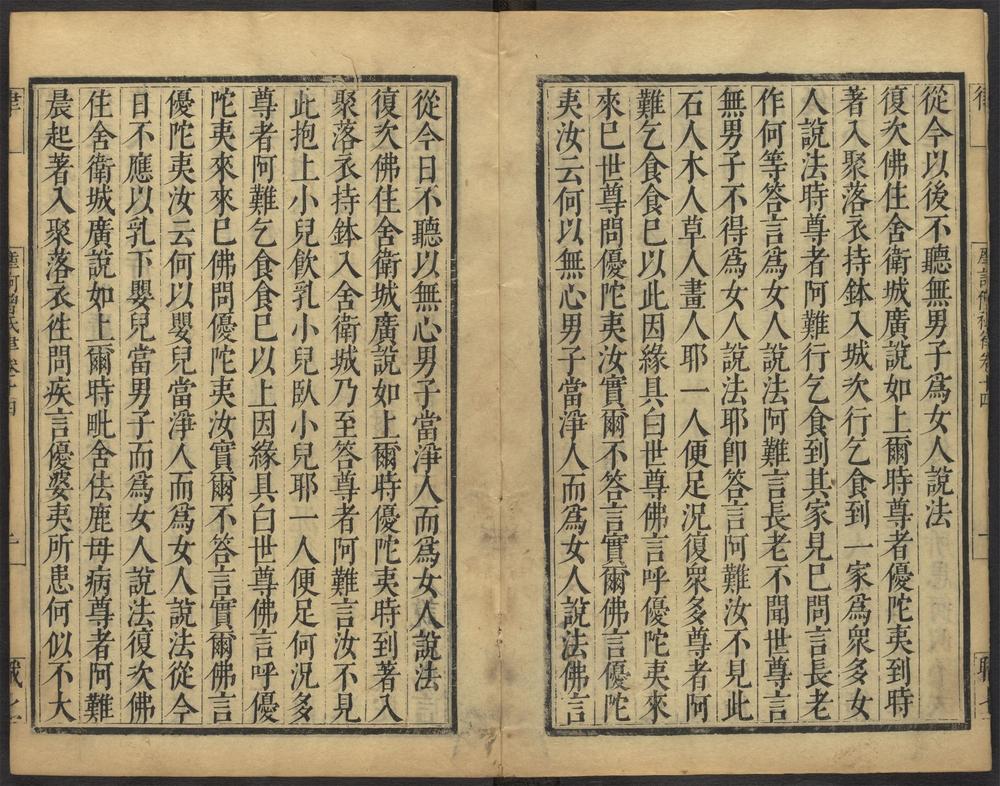 從今以後不聽無男子為女人說法
復次佛住舍衛城廣說如上爾時尊者優陀夷到時
著入聚落衣持鉢入城次行乞食到一家為衆多女
人說法時尊者阿難行乞食到其家見已問言長老
作何等答言為女人說法阿難言長老不聞世尊言
無男子不得為女人說法耶即答言阿難汝不見此
石人木人草人畫人耶一人便足況復衆多尊者阿
難乞食食已以此因緣具白世尊佛言呼優陀夷來
來已世尊問優陀夷汝實爾不答言實爾佛言優陀
夷汝云何以無心男子當淨人而為女人說法佛言
從今日不聽以無心男子當淨人而為女人說法
復次佛住舍衛城廣說如上爾時優陀夷時到著入
聚落衣持鉢入舍衛城乃至答尊者阿難言汝不見
此抱上小兒飲乳小兒臥小兒耶一人便足何況多
尊者阿難乞食食已以上因緣具白世尊佛言呼優
陀夷來來已佛問優陀夷汝實爾不答言實爾佛言
優陀夷汝云何以嬰兒當淨人而為女人說法從今
日不應以乳下嬰兒當男子而為女人說法復次佛
住舍衛城廣說如上爾時毗舍佉鹿母病尊者阿難
晨起著入聚落衣往問疾言優婆夷所患何似不大